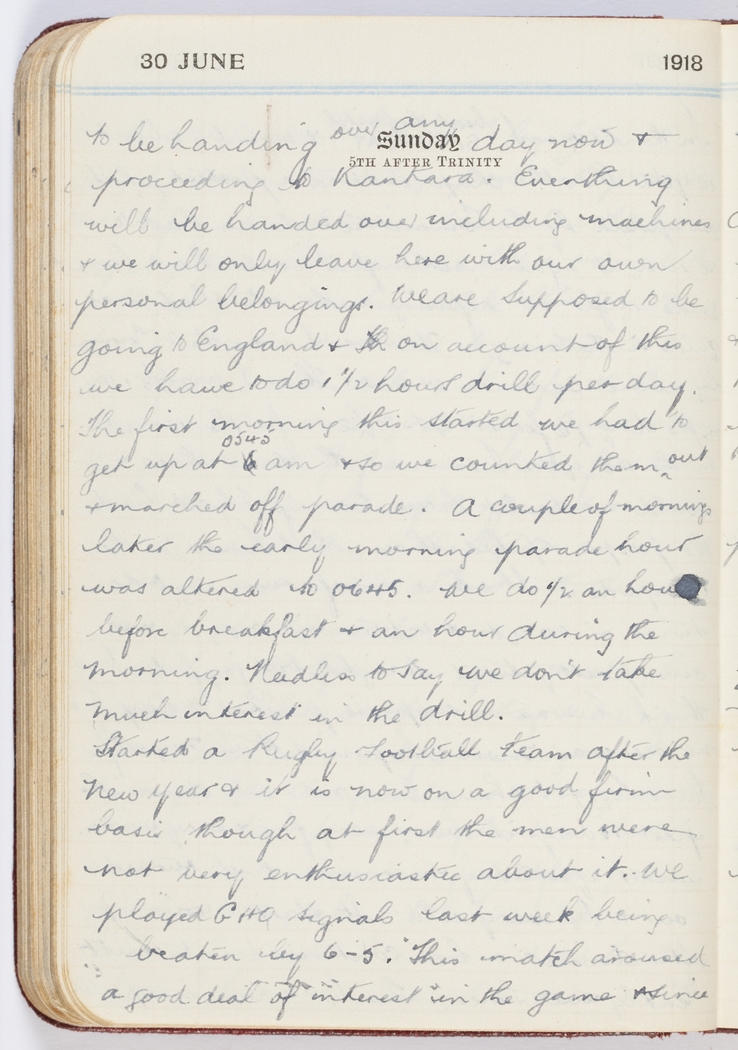 30 JUNE 1918
Sunday
5TH AFTER TRINITY
to be handing over any day now +
proceeding to Kantara. Everything
will be handed over including machines
+ we will only leave here with our own
personal belongings. We are supposed to be
going to England + on account of this
we have to do 1 1/2 hours drill per day.
The first morning this started we had to
0545
get up at 6 am + so we counted them out
+ marched off parade. A couple of mornings
later the early morning parade hour
was altered to 0645. We do 1/2 an hour
before breakfast + an hour during the
morning. Needless to say we don't take
much interest in the drill.
Started a Rugby Football team after the
New Year & it is now on a good firm
basis though at first the men were
not very enthusiastic about it. We
played GHQ Signals last week being
beaten by 6-5. This match aroused
a good deal of interest in the game + since